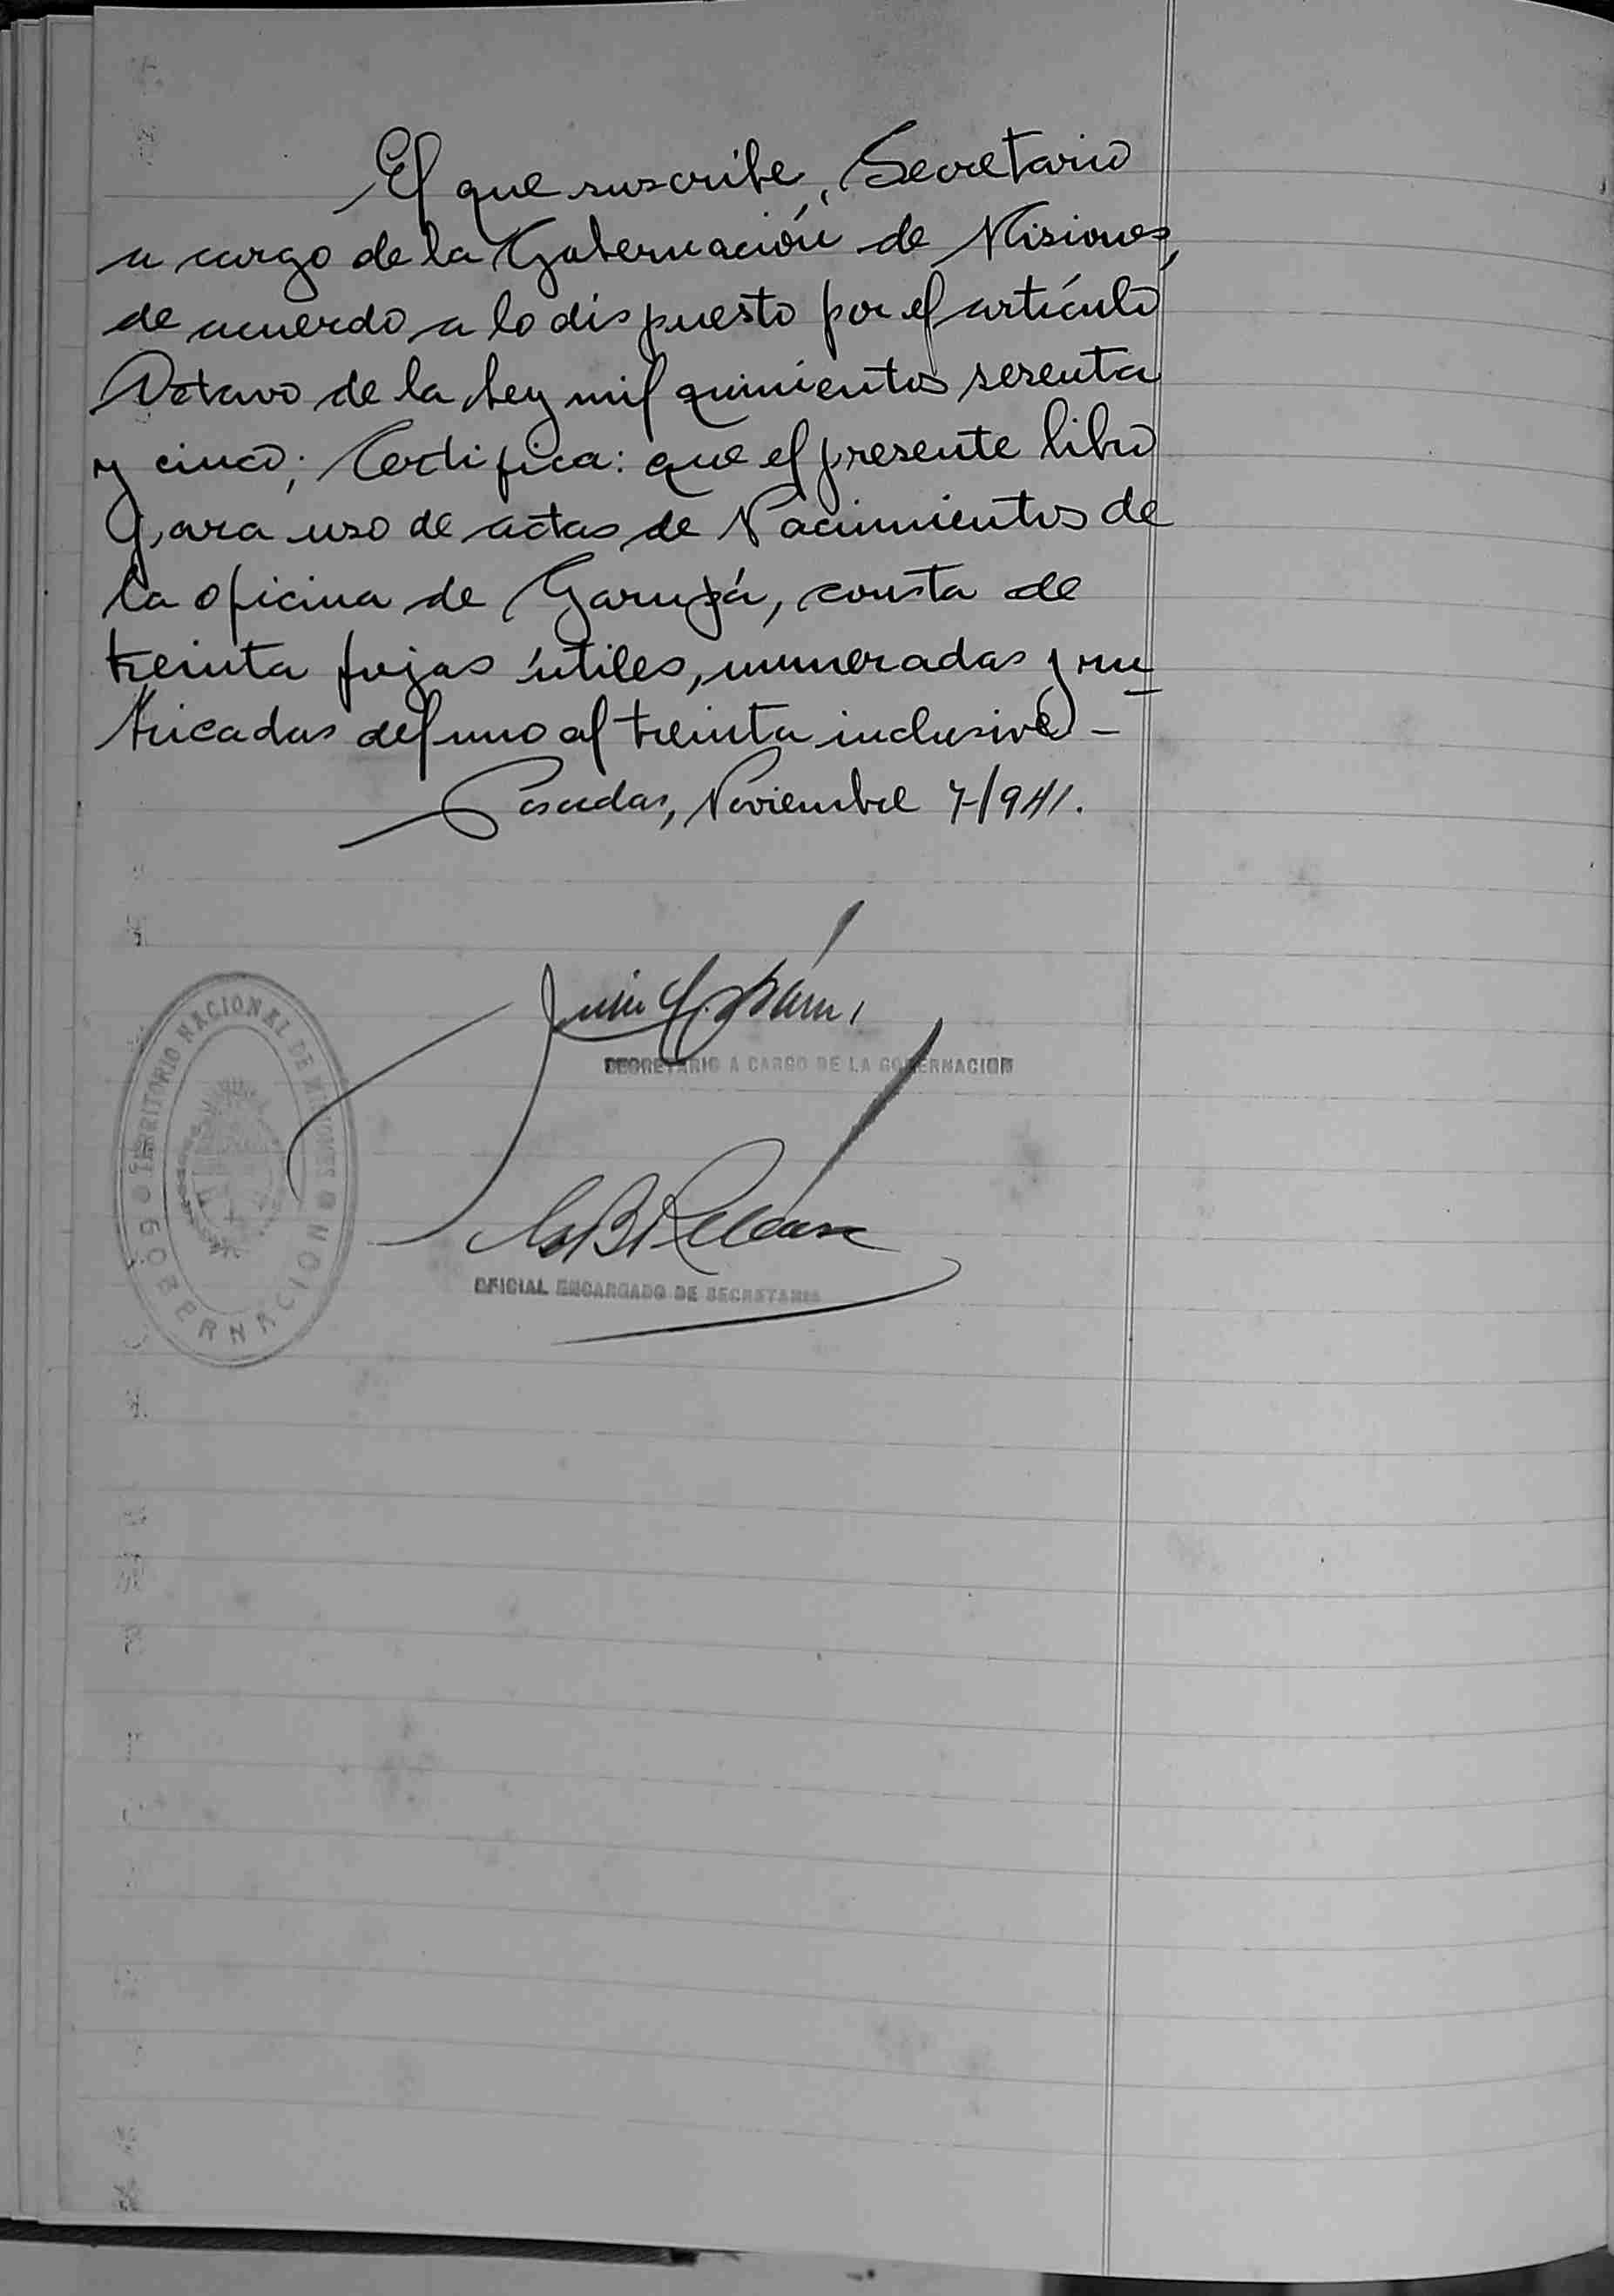 El que suscribe, Secretario
a cargo de la Gobernación de Misiones,
de acuerdo a lo dispuesto por el artículo
Octavo de la Ley mil quinientos sesenta
y cinco; Certifica: que el presente libro
para uso de actas de Nacimientos de
la oficina de Garupá, consta de
treinta fojas útiles, numeradas y ru
bricadas del uno al treinta inclusive -
Posadas, Noviembre 7/941.
SECRETARIO A CARGO DE LA GOBERNACION
TERRITORIO NACIONAL DE MISIONES
GOBERNACION
OFICIAL ENCARGADO DE SECRETARIA